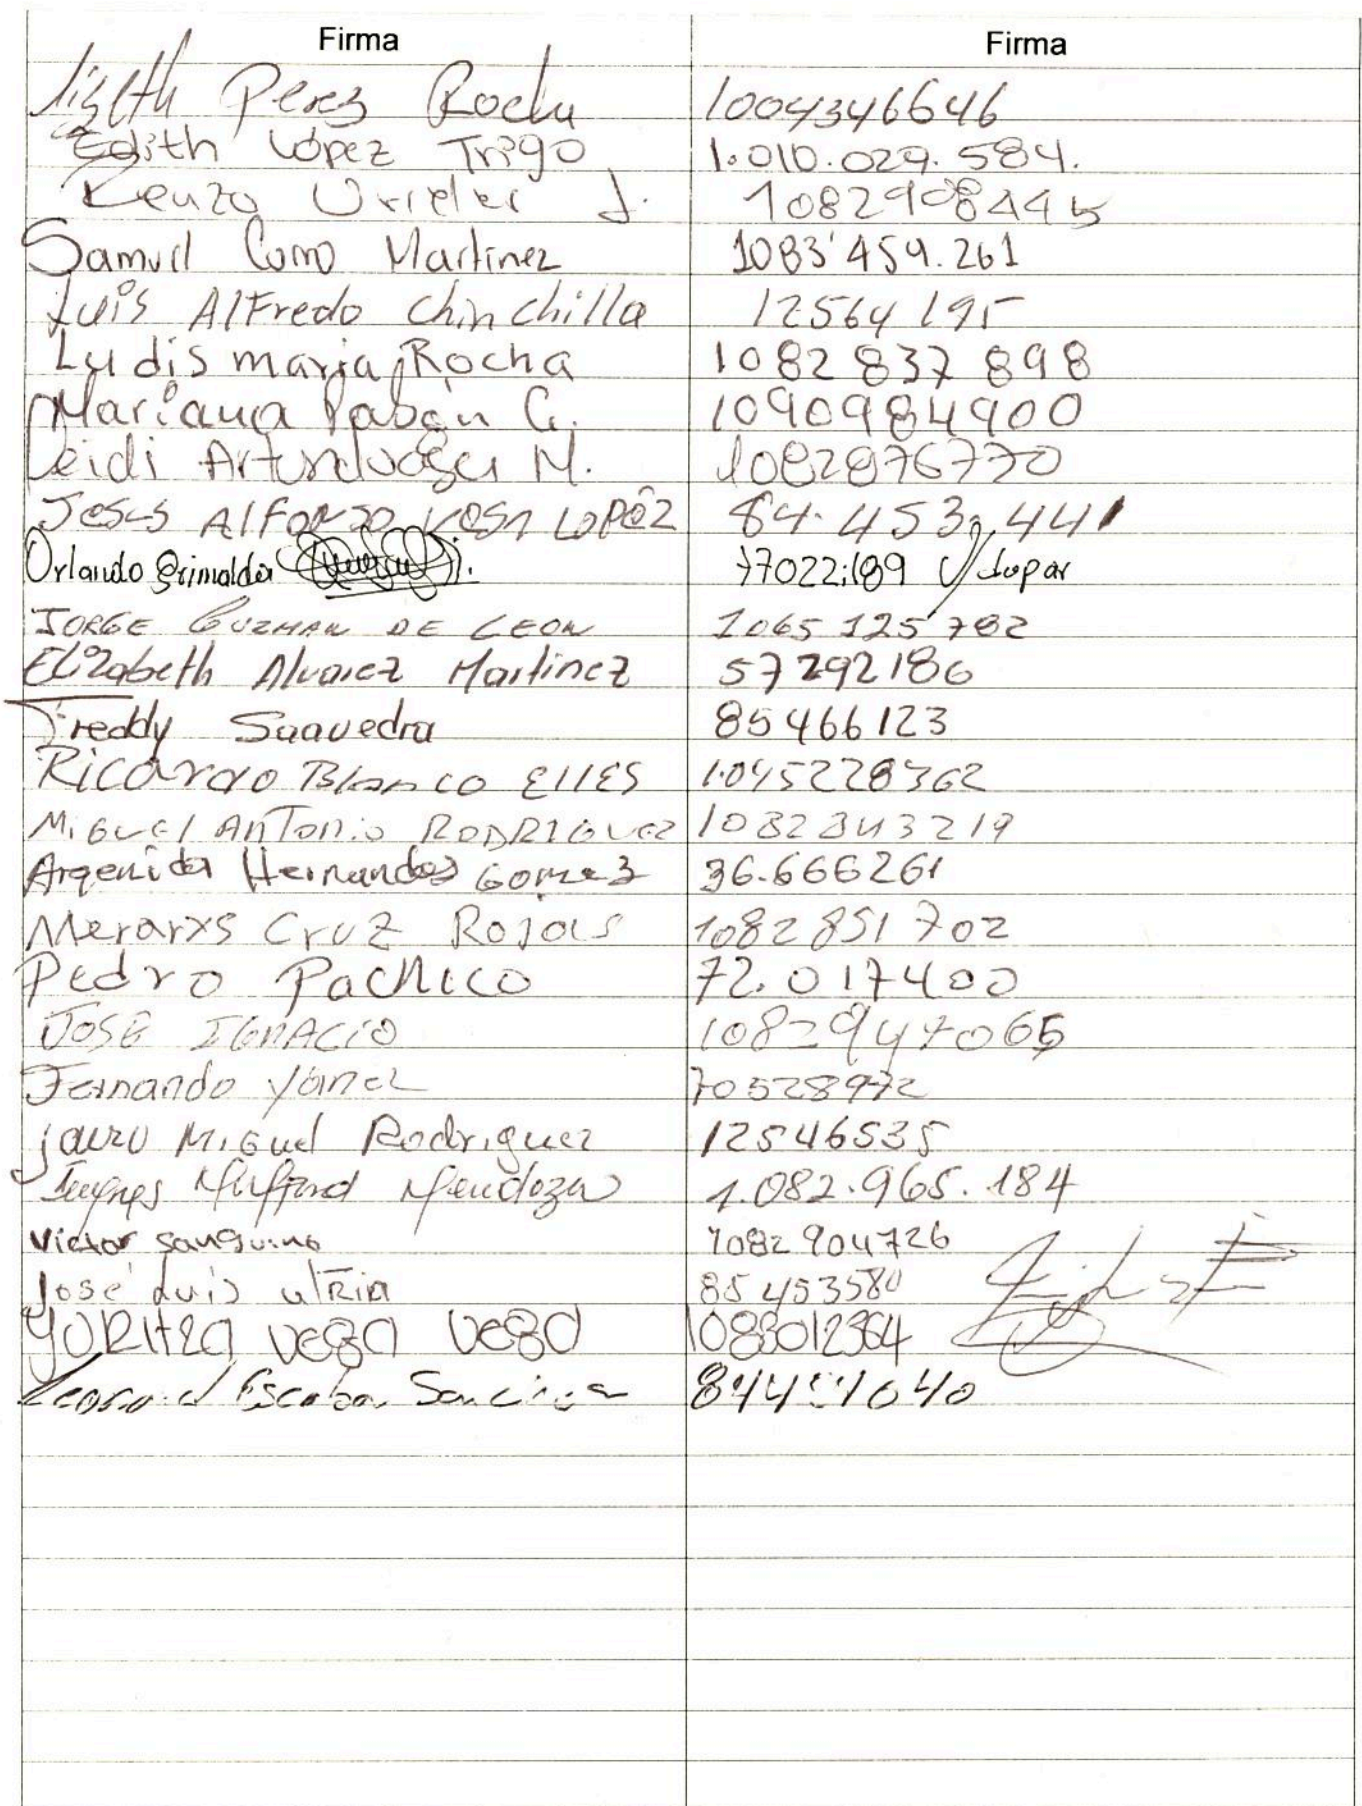 Firma Firma
Lizeth Perez Rocha 1004346646
Edith López Trigo 1.010.029.584.
Kenzo Urieles J. 1082908445
Samuel Como Martinez 1083'459.261
Luis Alfredo Chinchilla 12564195
Ludis maria Rocha 1082 837 898
Mariana Pabón G. 1090984900
Leidi Artunduaga M. 1082876770
Jesus Alfonso Vega Lopéz 84.453.441
Orlando Grimaldo 77022.189 V/dupar
JORGE GUZMAN DE LEON 1065125782
Elizabeth Alvarez Martinez 57292186
Freddy Saavedra 85466123
Ricardo Blanco EllES 1.045228362
MiGUEl AnTonio RODRIGUEZ 1082843219
Argenida Hernandez Gomez 36.666261
Merarys Cruz Rojas 1082851702
Pedro Pacheco 72.017400
JOSE IGNACIO 1082947065
Fernando Yanez 70528972
jairo Miguel Rodriguez 12546535
Mendoza 1.082.965.184
Victor sanguino 1082904726
José Luis uTRia 85453580
YORITZA vega vega 1083012364
Escobar